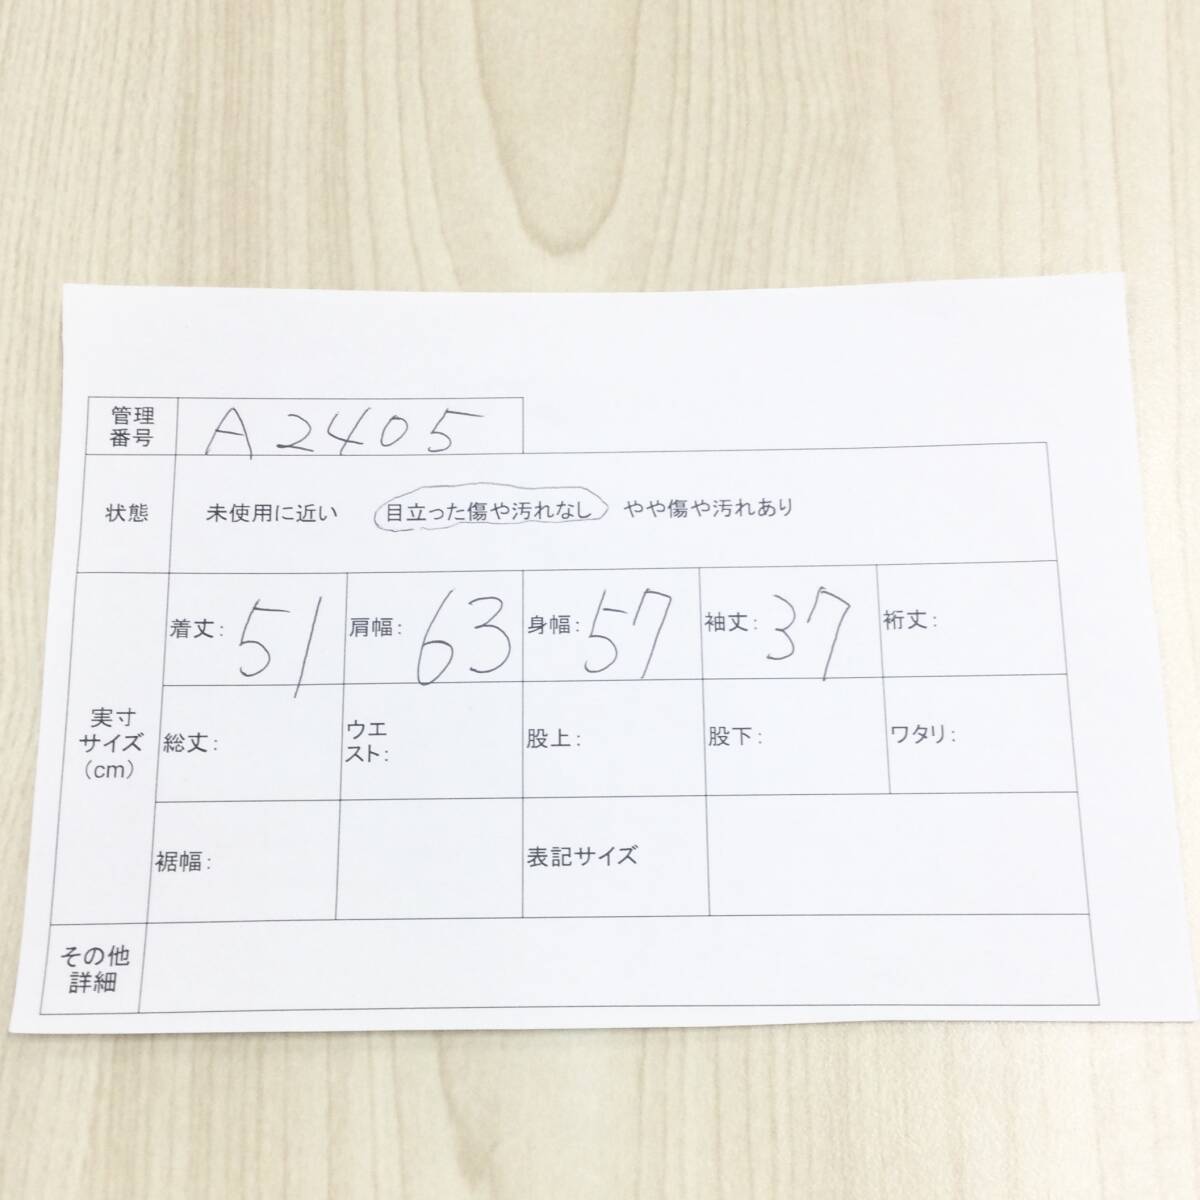 管理
番号
A2405
状態
未使用に近い 目立った傷や汚れなし やや傷や汚れあり
実寸
サイズ
(cm)
着丈: 51 肩幅: 63 身幅: 57 袖丈: 37 裄丈:
総丈: ウエ
スト: 股上: 股下: ワタリ:
裾幅: 表記サイズ
その他
詳細